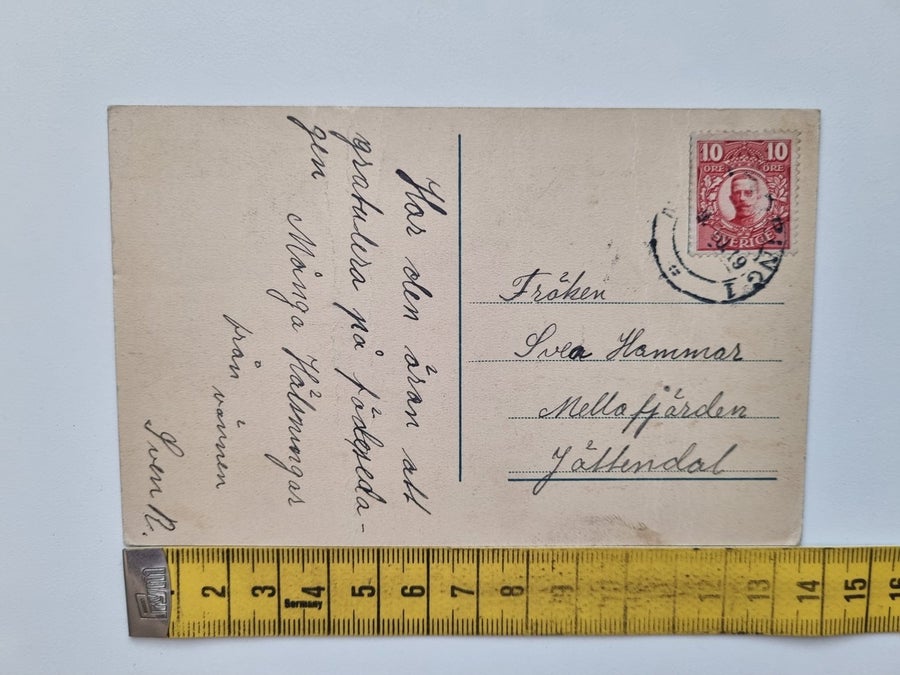 Har den äran att
gratulera på födeseda-
gen Många Hälsningar
från vännen
Sven R.
10 10
ÖRE ÖRE
SVERIGE
PING 1
19
Fröken
Svea Hammar
Mellafjärden
Jättendal
2 3 4 5 6 7 8 9 10 11 12 13 14 15 16
Germany